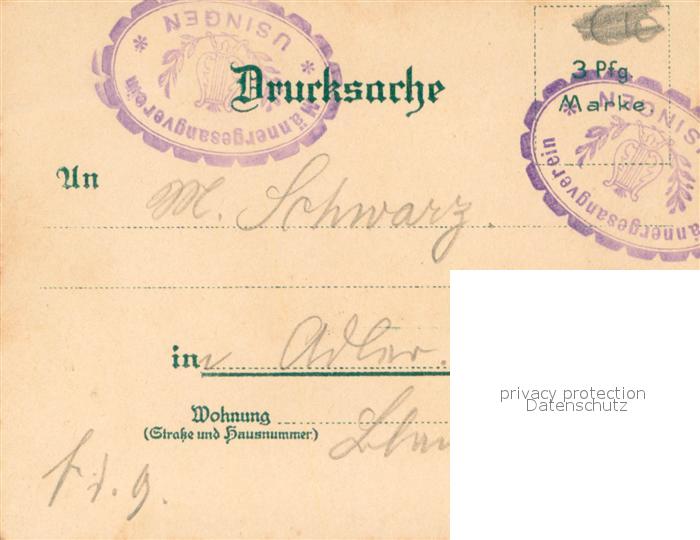 Männergesangverein * USINGEN *
Drucksache
3 Pfg.
Marke.
Männergesangverein * USINGEN
An M. Schwarz.
in Adler.
Wohnung
(Straße und Hausnummer)
privacy protection
Datenschutz